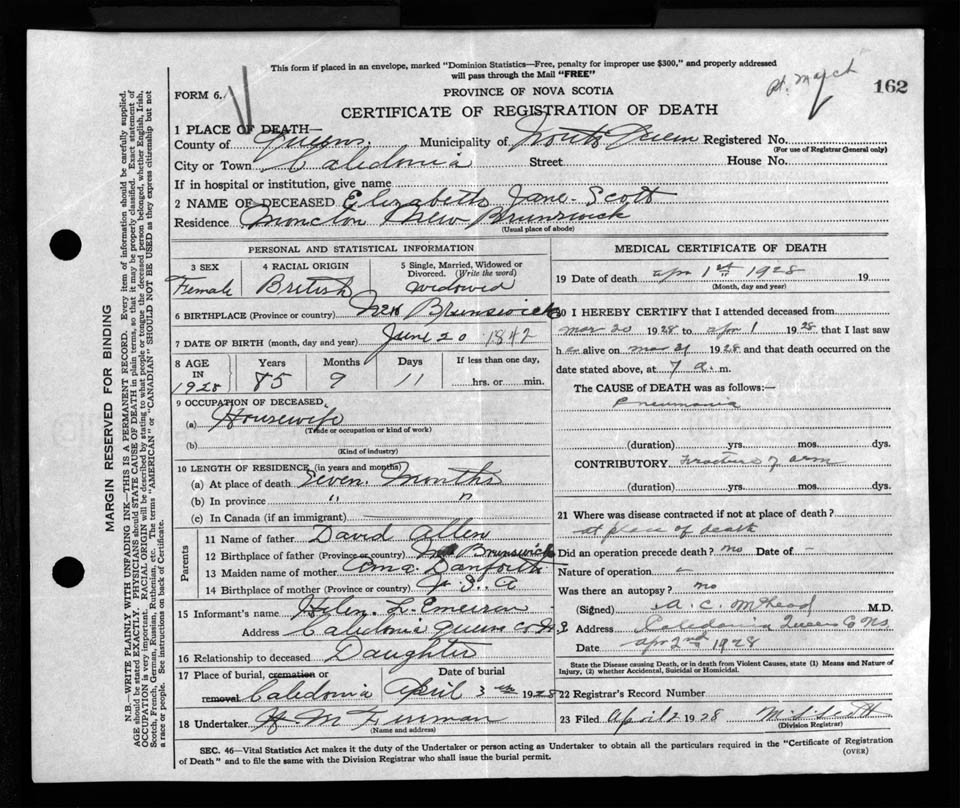 This form if placed in an envelope, marked "Dominion Statistics—Free, penalty for improper use $300," and properly addressed
will pass through the Mail "FREE"
pt. March
162
FORM 6.
PROVINCE OF NOVA SCOTIA
CERTIFICATE OF REGISTRATION OF DEATH
1 PLACE OF DEATH—
County of Queens Municipality of North Queen Registered No.
(For use of Registrar General only)
City or Town Caledonia Street House No.
If in hospital or institution, give name
2 NAME OF DECEASED Elizabeth Jane Scott
Residence Moncton New Brunswick
(Usual place of abode)
PERSONAL AND STATISTICAL INFORMATION
3 SEX 4 RACIAL ORIGIN 5 Single, Married, Widowed or
Divorced. (Write the word)
Female British widowed
6 BIRTHPLACE (Province or country) New Brunswick
7 DATE OF BIRTH (month, day and year) June 20 1842
8 AGE Years Months Days If less than one day,
IN
1928 85 9 11 hrs. or min.
9 OCCUPATION OF DECEASED.
(a) Housewife
(Trade or occupation or kind of work)
(b)
(Kind of industry)
10 LENGTH OF RESIDENCE (in years and months)
(a) At place of death Seven Months
(b) In province " "
(c) In Canada (if an immigrant)
Parents
11 Name of father David Allen
12 Birthplace of father (Province or country) Brunswick
13 Maiden name of mother Danforth
14 Birthplace of mother (Province or country) U.S.A
15 Informant's name Helen L. Emerson
Address Caledonia Queens Co N.S
16 Relationship to deceased Daughter
17 Place of burial, cremation or Date of burial
removal Caledonia April 3 1928
18 Undertaker H M
(Name and address)
MEDICAL CERTIFICATE OF DEATH
19 Date of death apr 1st 1928 19
(Month, day and year)
20 I HEREBY CERTIFY that I attended deceased from
mar 20 1928 to apr 1 1928 that I last saw
h alive on mar 31 1928 and that death occurred on the
date stated above, at 7 a. m.
The CAUSE of DEATH was as follows:—
Pneumonia
(duration) yrs. mos. dys.
CONTRIBUTORY Fracture of arm
(duration) yrs. mos. dys.
21 Where was disease contracted if not at place of death?
at place of death
Did an operation precede death? no Date of -
Nature of operation -
Was there an autopsy? no
(Signed) A. C. M.D.
Address Caledonia Queens Co NS
Date apr 2nd 1928
State the Disease causing Death, or in death from Violent Causes, state (1) Means and Nature of
Injury, (2) whether Accidental, Suicidal or Homicidal.
22 Registrar's Record Number
23 Filed April 2 1928
(Division Registrar)
SEC. 46—Vital Statistics Act makes it the duty of the Undertaker or person acting as Undertaker to obtain all the particulars required in the "Certificate of Registration
of Death" and to file the same with the Division Registrar who shall issue the burial permit.
(OVER)
MARGIN RESERVED FOR BINDING
N.B.—WRITE PLAINLY WITH UNFADING INK—THIS IS A PERMANENT RECORD. Every item of information should be carefully supplied.
AGE should be stated EXACTLY. PHYSICIANS should STATE CAUSE OF DEATH in plain terms, so that it may be properly classified. Exact statement of
OCCUPATION is very important. RACIAL ORIGIN will be described by stating to what people or tongue the deceased person belonged, whether English, Irish,
Scotch, French, German, Russian, Ruthenian, etc. The terms "AMERICAN" or "CANADIAN" SHOULD NOT BE USED as they express citizenship but not
a race or people. See instructions on back of Certificate.